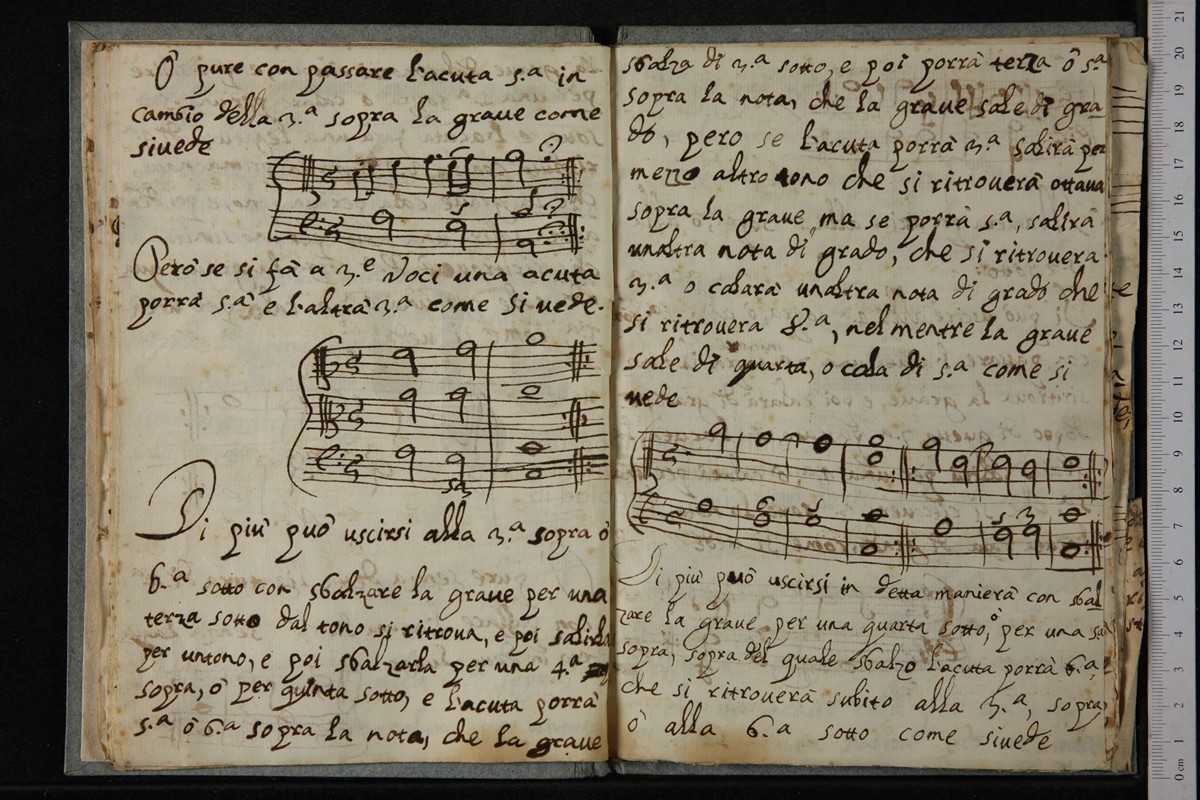 O pure con passare l'acuta 5.a in
cambio della 3.a sopra la graue come
siuede
5
Però se si fà a 3.e Voci una acuta
porrà 5.a e l'altra 3.a come si uede.
Di più può uscirsi alla 3.a sopra ò
6.a sotto con sbalzare la graue per una
terza sotto dal tono si ritroua, e poi salirla
per untono, e poi sbalzarla per una 4.a
sopra, ò per quinta sotto, e l'acuta porrà
5.a ò 6.a sopra la nota, che la graue
sbalza di 3.a sotto, e poi porrà terza ò 5.a
sopra la nota, che la graue sale di gra
do, però se l'acuta porrà 3.a salirà per
mezzo altro tono che si ritrouerà ottaua
sopra la graue, ma se porrà 5.a, salirà
unaltra nota di grado, che si ritrouera
3.a o calarà unaltra nota di grado che
si ritrouera 8.a, nel mentre la graue
sale di quarta, o cala di 5.a come si
uede
6 5
5 3
Di più può uscirsi in detta manierà con sbal
zare la graue per una quarta sotto, ò per una
sopra, sopra del quale sbalzo l'acuta porrà 6.a,
che si ritrouerà subito alla 3.a, sopra,
ò alla 6.a sotto come siuede